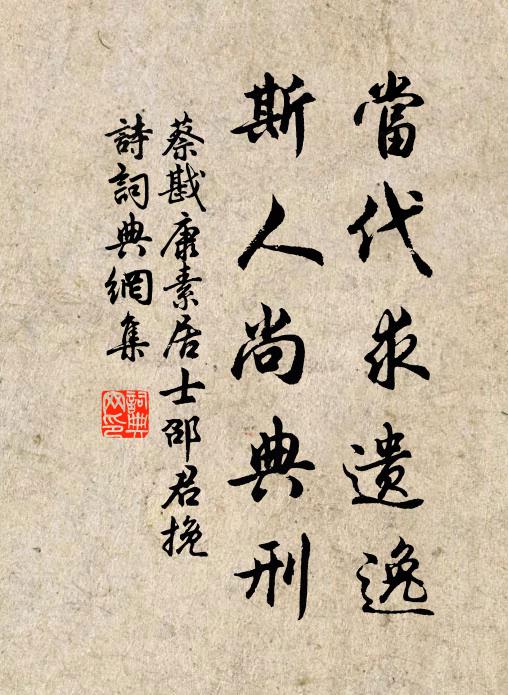 當代求遺逸
斯人尚典刑
蔡戡康素居士邵君挽
詩詞典網集
詞典網印